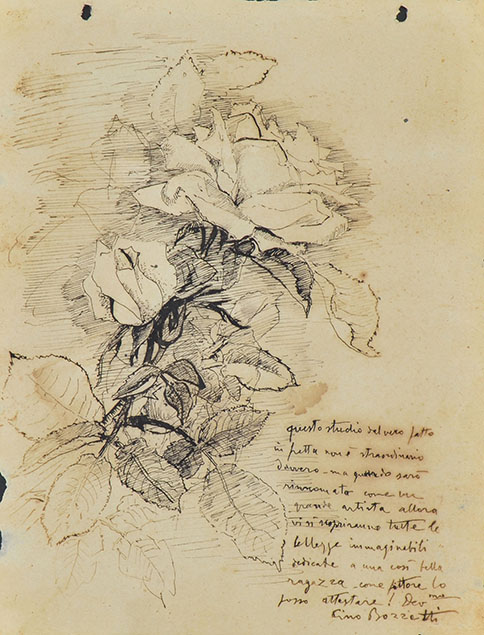 questo studio dal vero fatto
in fretta non è straordinario
davvero - ma quando sarò
rinnomato come un
grande artista allora
vi si scopriranno tutte le
bellezze immaginabili
dedicate a una così bella
ragazza come pittore lo
posso attestare! Dev.mo
Cino Bozzetti